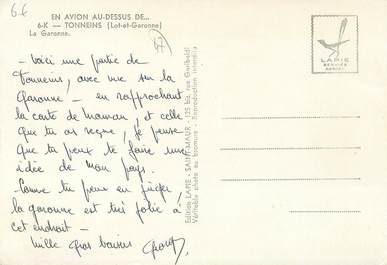 6€
EN AVION AU-DESSUS DE...
6-K — TONNEINS (Lot-et-Garonne)
La Garonne.
- Voici une partie de
Tonneins, avec vue sur la
Garonne - en rapprochant
la carte de Maman, et celle
que tu as reçue, je pense
que tu peux te faire une
idée de mon pays.
- Comme tu peux en juger,
la garonne est très jolie à
cet endroit -
Mille gros baisers
Edition LAPIE - SAINT-MAUR - 125 bis, rue Garibaldi
Véritable photo au bromure - Reproduction interdite
LAPIE
SERVICE
AERIEN